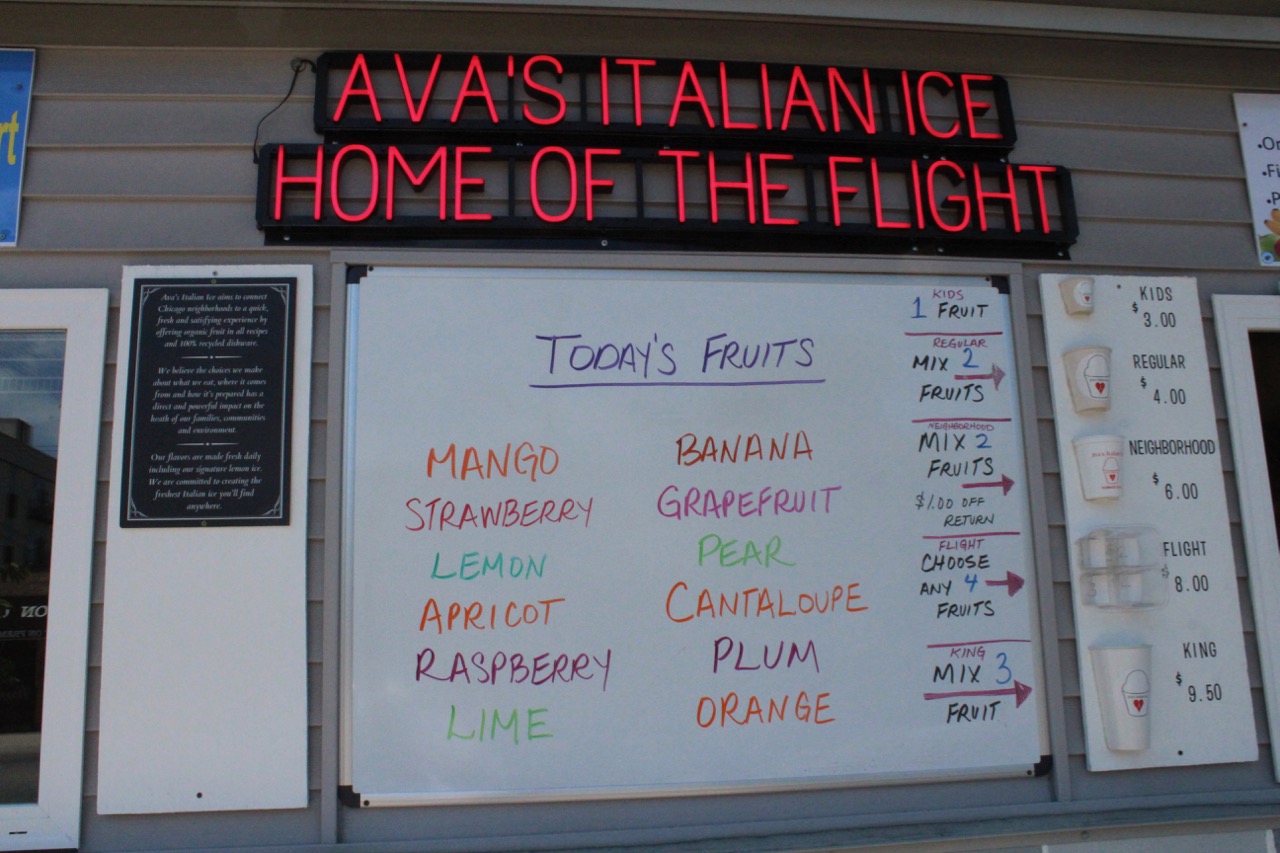 AVA'S ITALIAN ICE
HOME OF THE FLIGHT
rt
Ava's Italian Ice aims to connect
Chicago neighborhoods to a quick,
fresh and satisfying experience by
offering organic fruit in all recipes
and 100% recycled dishware.
We believe the choices we make
about what we eat, where it comes
from and how it's prepared has a
direct and powerful impact on the
heath of our families, communities
and environment.
Our flavors are made fresh daily
including our signature lemon ice.
We are committed to creating the
freshest Italian ice you'll find
anywhere.
TODAY'S FRUITS
MANGO
STRAWBERRY
LEMON
APRICOT
RASPBERRY
LIME
BANANA
GRAPEFRUIT
PEAR
CANTALOUPE
PLUM
ORANGE
KIDS
1 FRUIT
REGULAR
MIX 2
FRUITS
NEIGHBORHOOD
MIX 2
FRUITS
$1.00 OFF
RETURN
FLIGHT
CHOOSE
ANY 4
FRUITS
KING
MIX 3
FRUIT
KIDS
$3.00
REGULAR
$4.00
NEIGHBORHOOD
$6.00
FLIGHT
$8.00
KING
$9.50
•Or
•Fi
•P